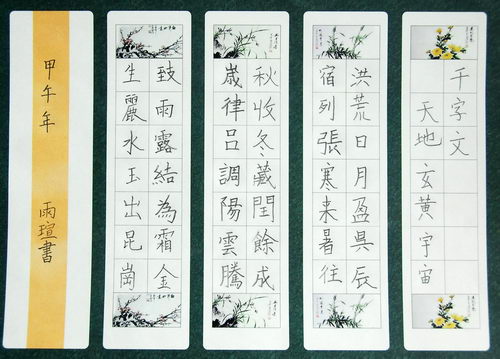 千字文
天地玄黃宇宙
洪荒日月盈昃辰
宿列張寒来暑往
秋收冬藏閏餘成
歲律呂調陽雲騰
致雨露結為霜金
生麗水玉出昆崗
甲午年 雨瑄書